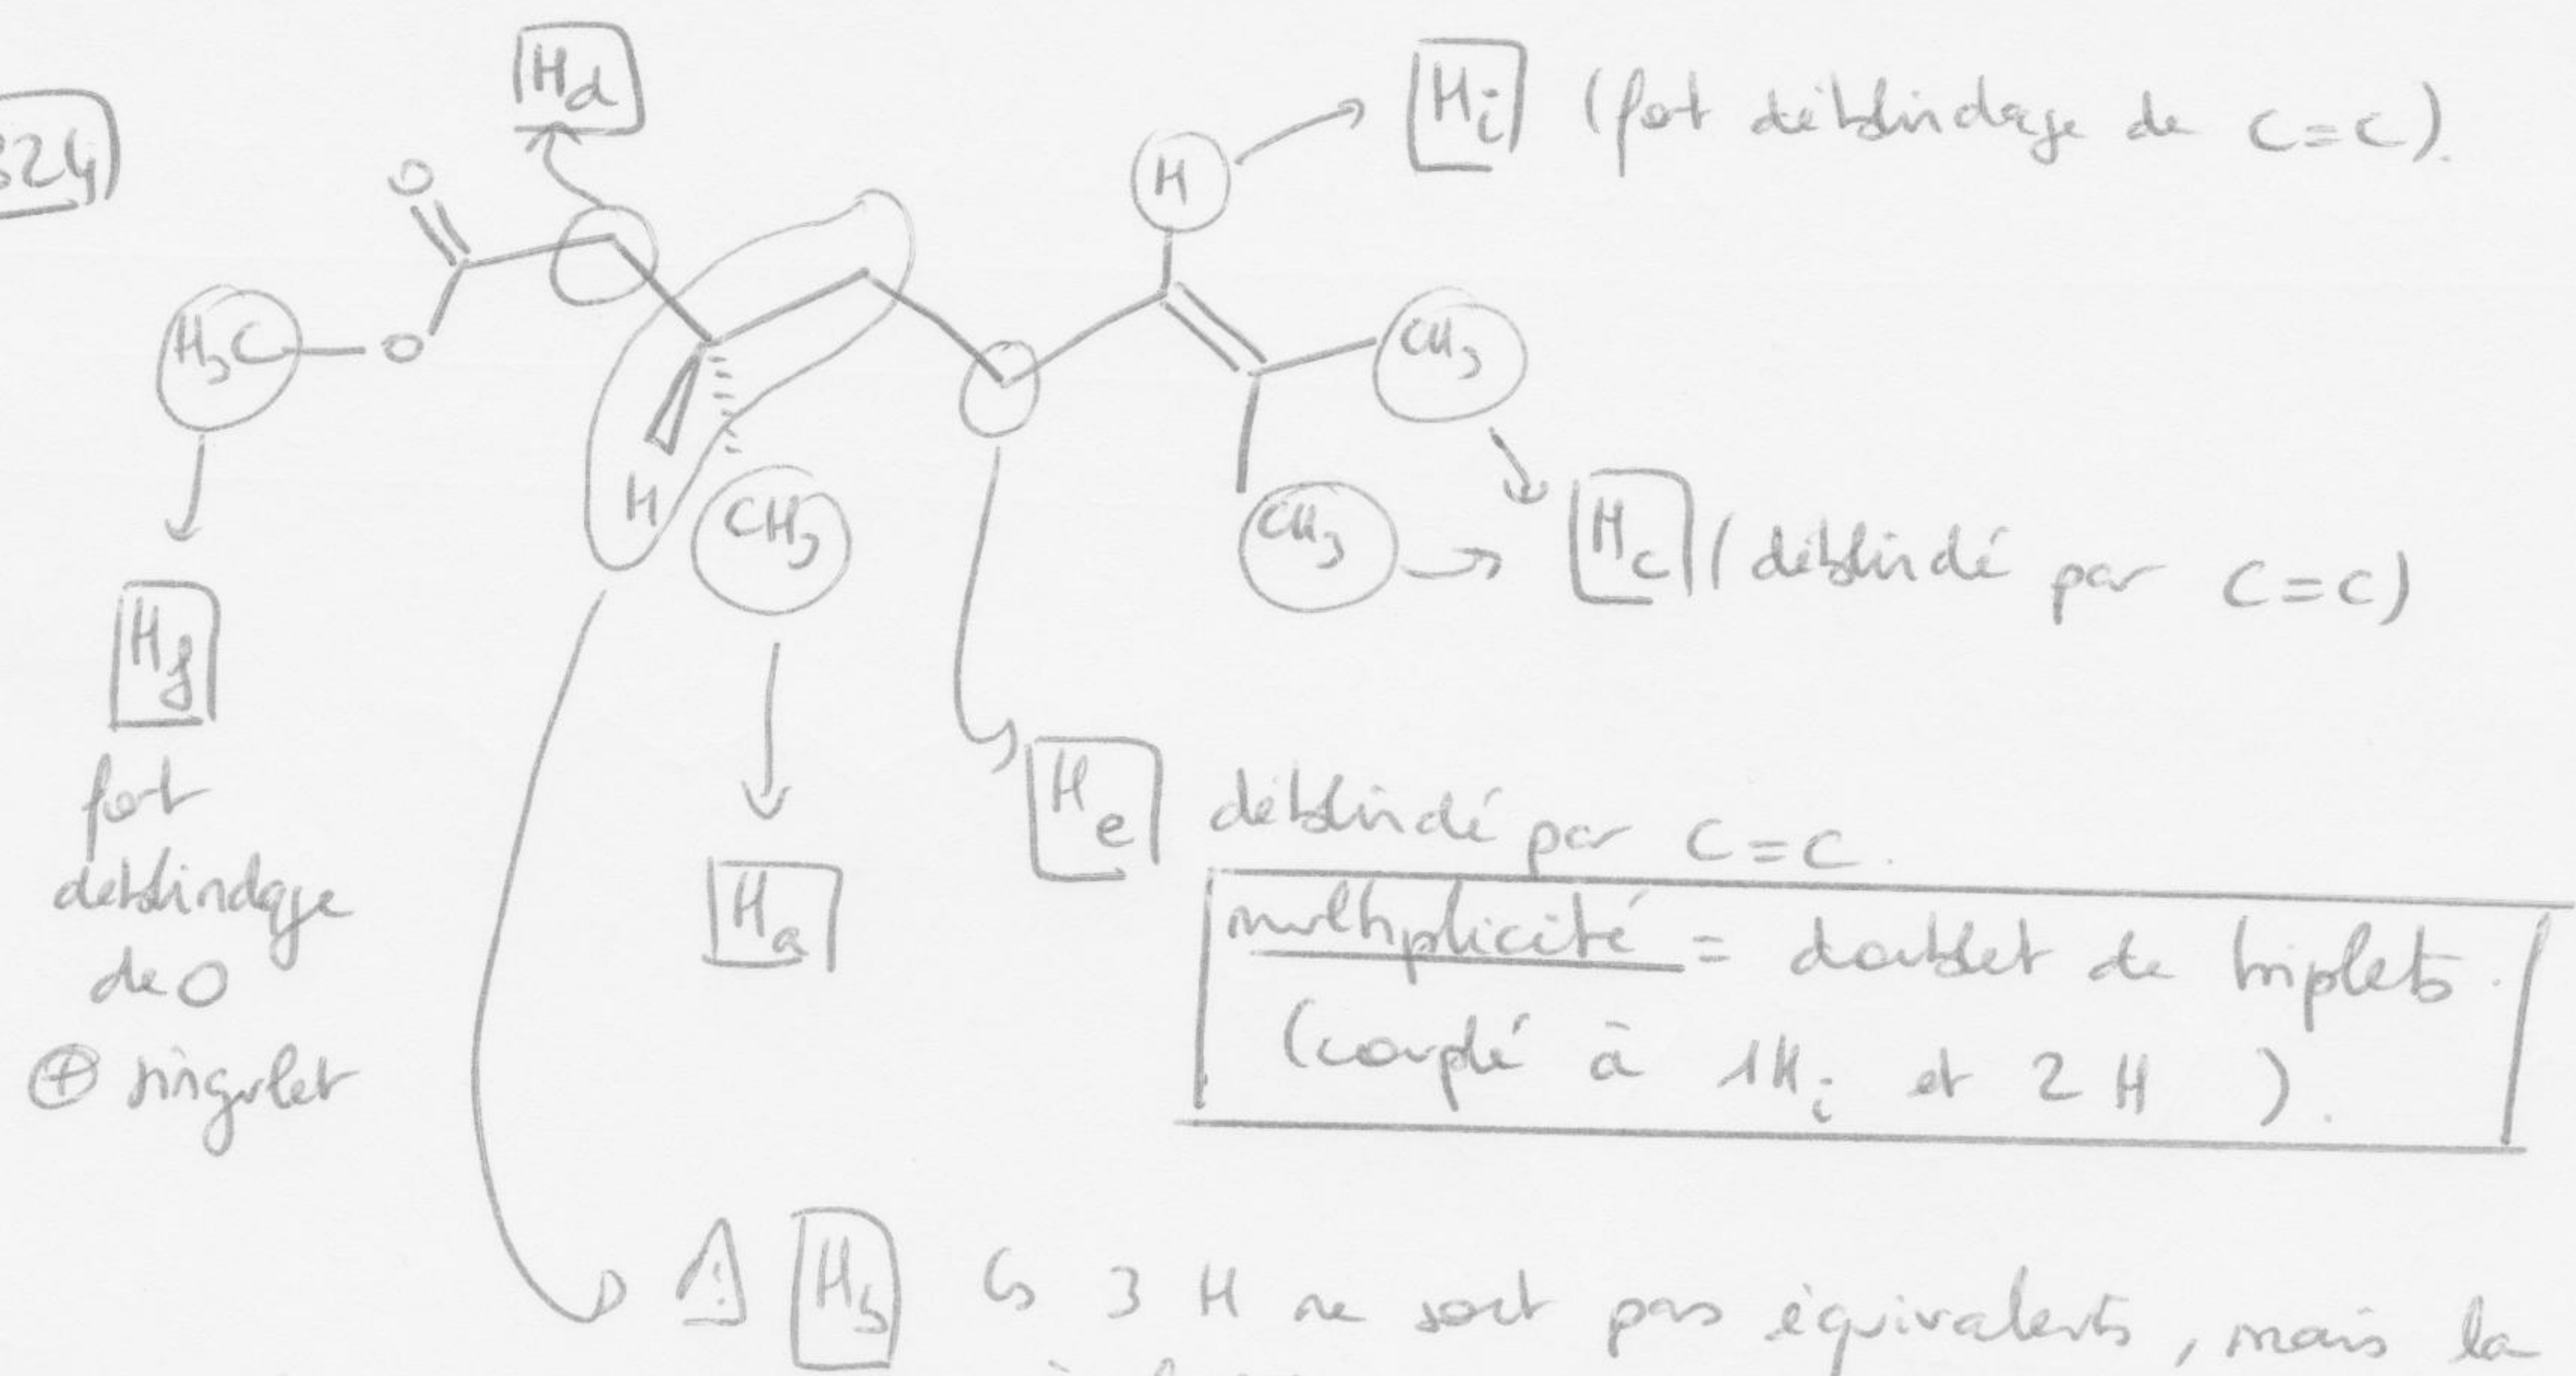 324)
Hd
Hi (fort déblindage de C=C).
O
H
H3C
O
CH3
H
CH3
CH3
Hc (déblindé par C=C)
Hf
fort
déblindage
de O
⊕ singulet
Ha
He déblindé par C=C.
multiplicité = doublet de triplets.
(couplé à 1Hi et 2 H ).
⚠ Hb Cs 3 H ne sont pas équivalents, mais la